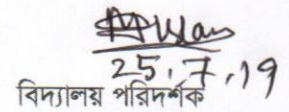 25.7.19
বিদ্যালয় পরিদর্শক